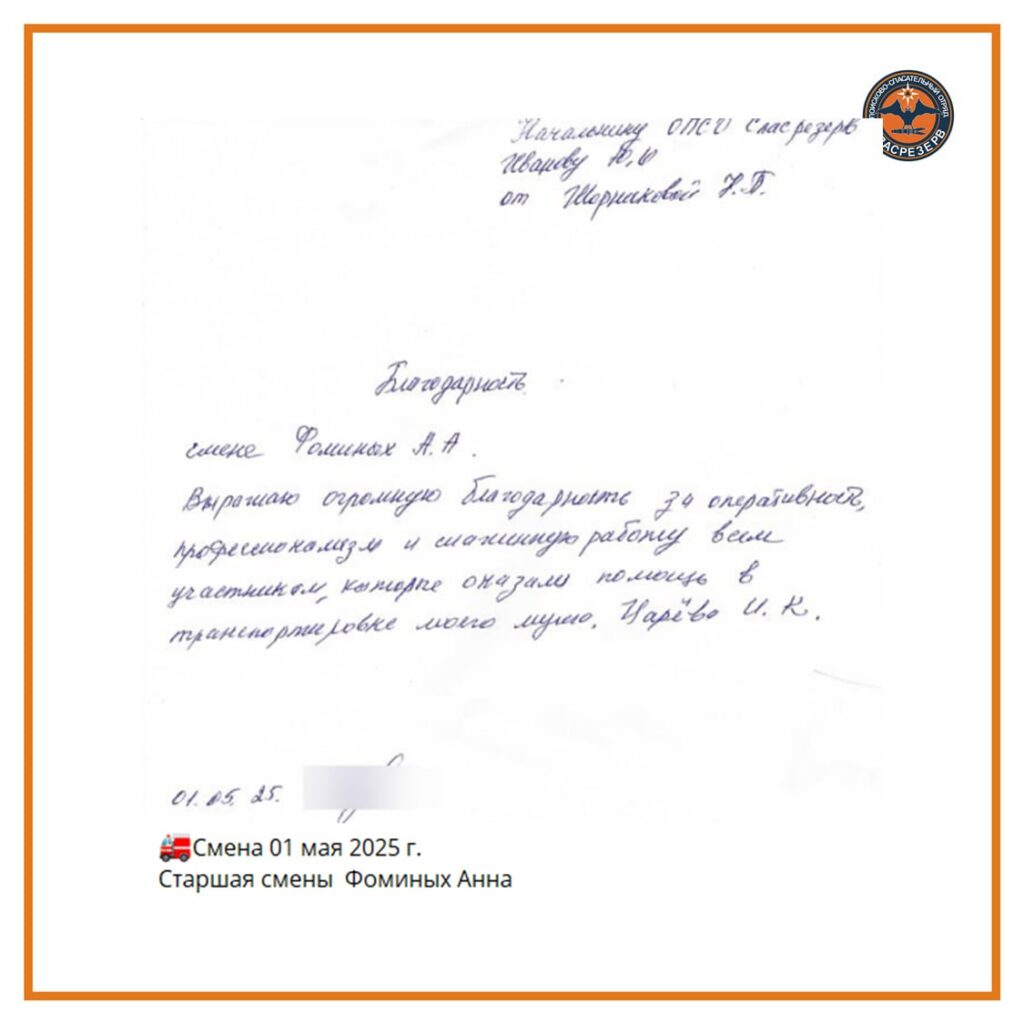 ПОИСКОВО-СПАСАТЕЛЬНЫЙ ОТРЯД
АСРЕЗЕРВ
Начальнику ОПСО Спасрезерв
Иванову Ю.Ю
от Шорниковой Н.В.
Благодарность
смене Фоминых А.А.
Выражаю огромную благодарность за оперативность,
профессионализм и слаженную работу всем
участникам, которые оказали помощь в
транспортировке моего мужа. Царёва И. К.
01.05.25.
Смена 01 мая 2025 г.
Старшая смены Фоминых Анна